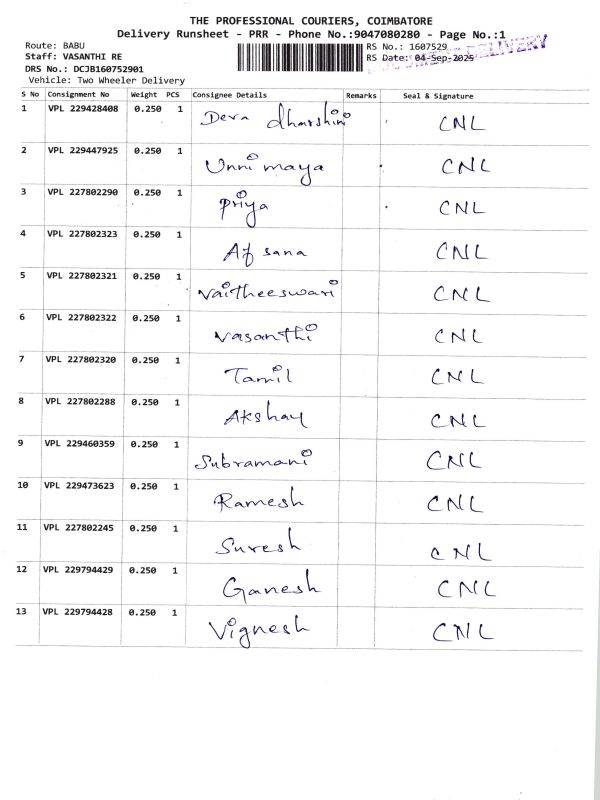 THE PROFESSIONAL COURIERS, COIMBATORE
Delivery Runsheet - PRR - Phone No.:9047080280 - Page No.:1
Route: BABU
Staff: VASANTHI RE
DRS No.: DCJB160752901
Vehicle: Two Wheeler Delivery
RS No.: 1607529
RS Date: 04-Sep-2025
DELIVERY
S No Consignment No Weight PCS Consignee Details Remarks Seal & Signature
1 VPL 229428408 0.250 1 Deva dharshini CNL
2 VPL 229447925 0.250 1 Unni maya CNL
3 VPL 227802290 0.250 1 Priya CNL
4 VPL 227802323 0.250 1 Afsana CNL
5 VPL 227802321 0.250 1 Vaitheeswari CNL
6 VPL 227802322 0.250 1 Vasanthi CNL
7 VPL 227802320 0.250 1 Tamil CNL
8 VPL 227802288 0.250 1 Akshay CNL
9 VPL 229460359 0.250 1 Subramani CNL
10 VPL 229473623 0.250 1 Ramesh CNL
11 VPL 227802245 0.250 1 Suresh CNL
12 VPL 229794429 0.250 1 Ganesh CNL
13 VPL 229794428 0.250 1 Vignesh CNL